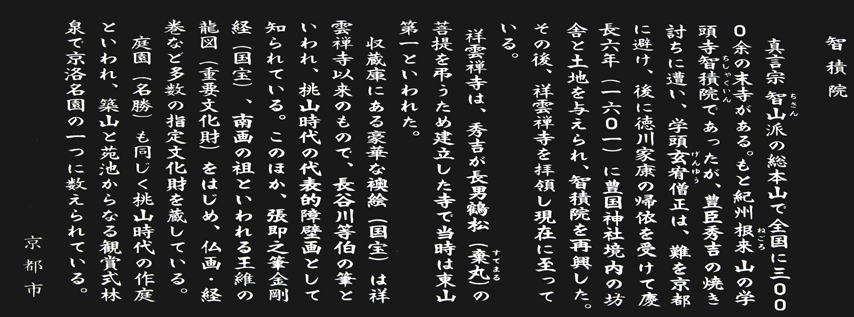 智積院
真言宗智山派の総本山で全国に三〇〇
〇余の末寺がある。もと紀州根来山の学
頭寺智積院であったが、豊臣秀吉の焼き
討ちに遭い、学頭玄宥僧正は、難を京都
に避け、後に徳川家康の帰依を受けて慶
長六年（一六〇一）に豊国神社境内の坊
舎と土地を与えられ、智積院を再興した。
その後、祥雲禅寺を拝領し現在に至って
いる。
祥雲禅寺は、秀吉が長男鶴松（棄丸）の
菩提を弔うため建立した寺で当時は東山
第一といわれた。
収蔵庫にある豪華な襖絵（国宝）は祥
雲禅寺以来のもので、長谷川等伯の筆と
いわれ、桃山時代の代表的障壁画として
知られている。このほか、張即之筆金剛
経（国宝）、南画の祖といわれる王維の
龍図（重要文化財）をはじめ、仏画・経
巻など多数の指定文化財を蔵している。
庭園（名勝）も同じく桃山時代の作庭
といわれ、築山と苑池からなる観賞式林
泉で京洛名園の一つに数えられている。
京都市